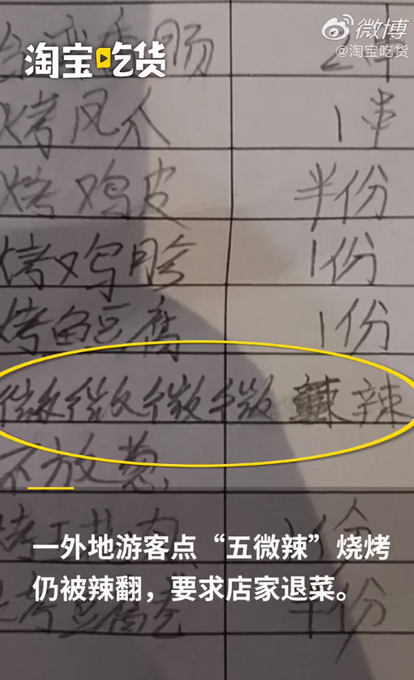 淘宝吃货
微博
@淘宝吃货
肠 2串
烤 1串
烤鸡皮 半份
烤鸡胗 1份
烤鱼豆腐 1份
微微微微 辣
不放葱
一外地游客点“五微辣”烧烤
仍被辣翻，要求店家退菜。
半份